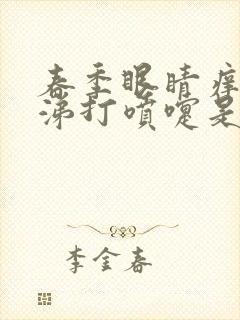 春季眼睛痒
涕打喷嚏是
李金春